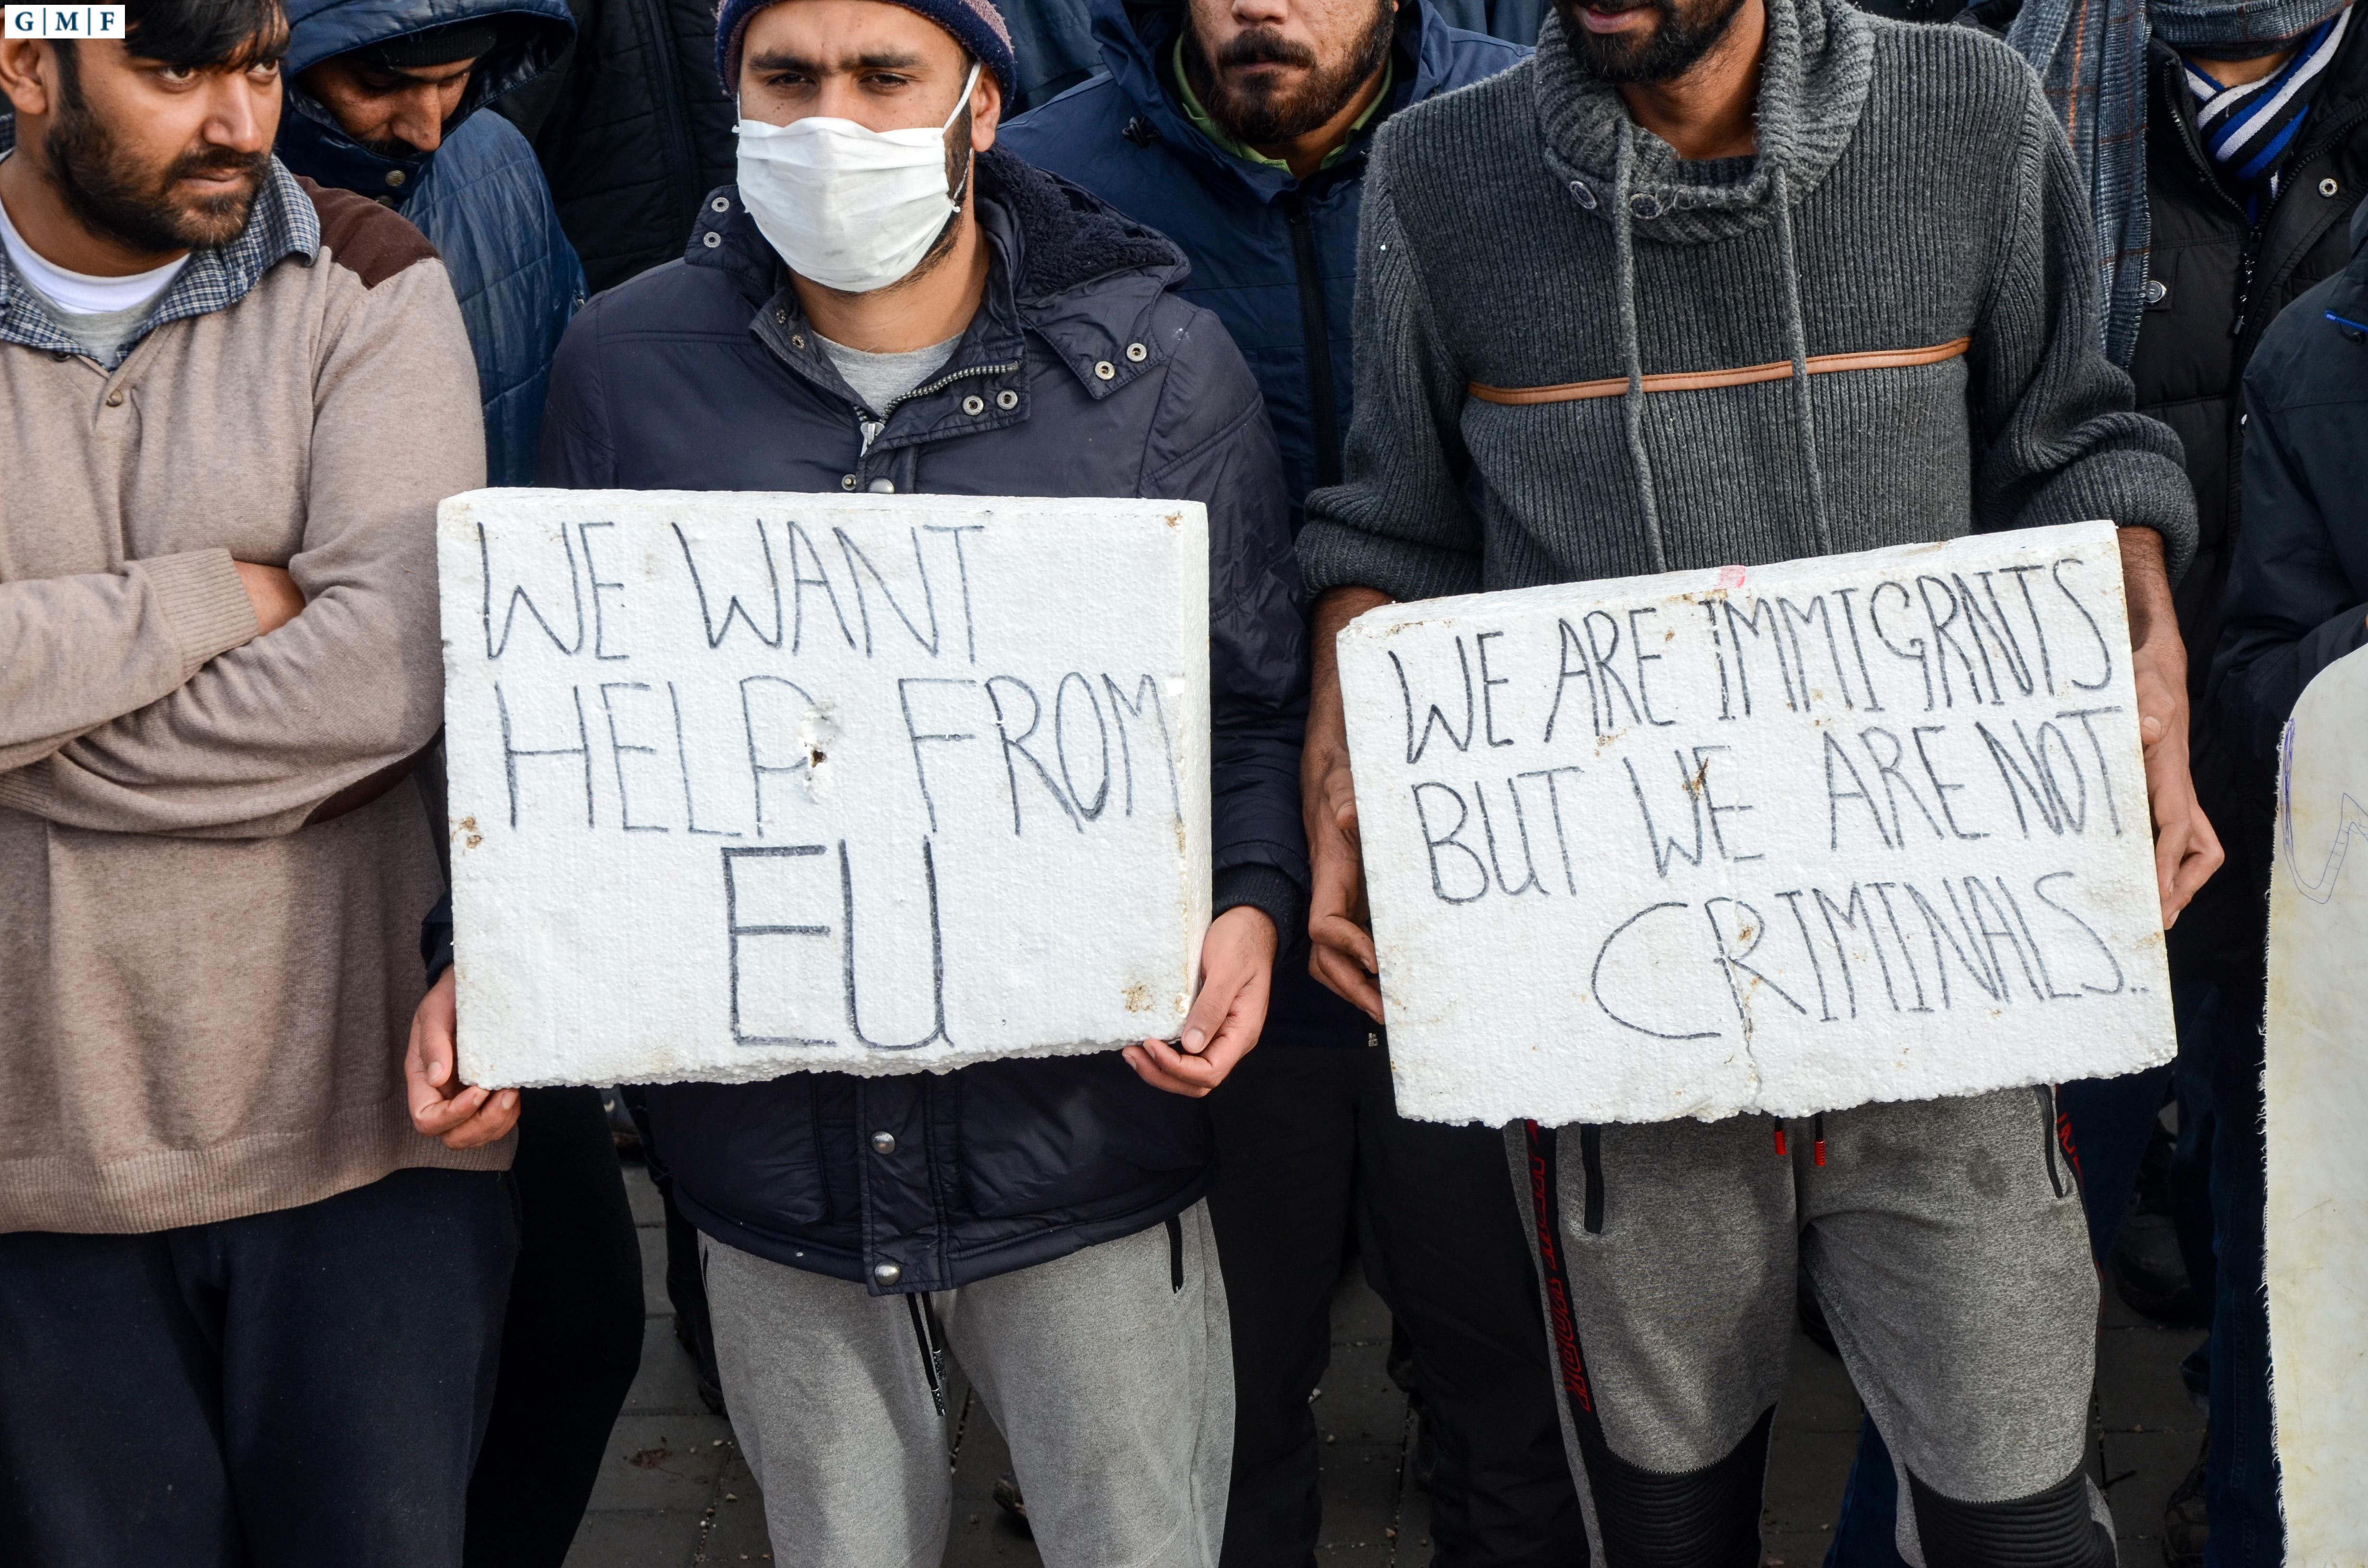 G|M|F
WE WANT
HELP FROM
EU
WE ARE IMMIGRNTS
BUT WE ARE NOT
CRIMINALS..